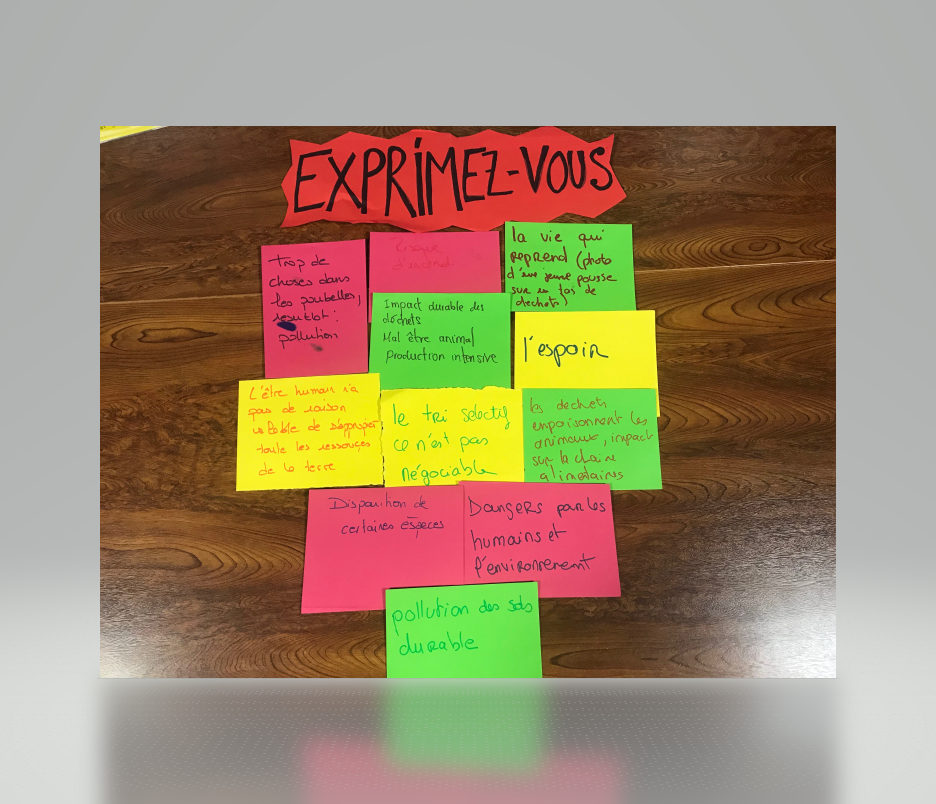 EXPRIMEZ-VOUS
trop de
choses dans
les poubelles,
resultat :
pollution
Risque
la vie qui
reprend (photo
d'une jeune pousse
sur un tas de
dechets)
Impact durable des
déchets
Mal être animal
production intensive
l'espoir
L'être humain n'a
pas de raison
de
toute les ressources
de la terre
le tri sélectif
ce n'est pas
négociable
les dechets
empoisonnent les
animaux, impact
sur la chaine
alimentaires
Disparition de
certaines espèces
Dangers par les
humains et
l'environnement
pollution des sols
durable